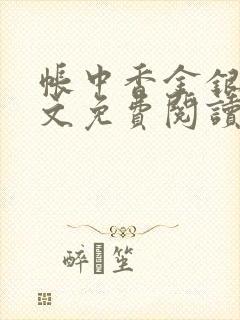 帳中香金銀
文免費閱讀
醉 笙